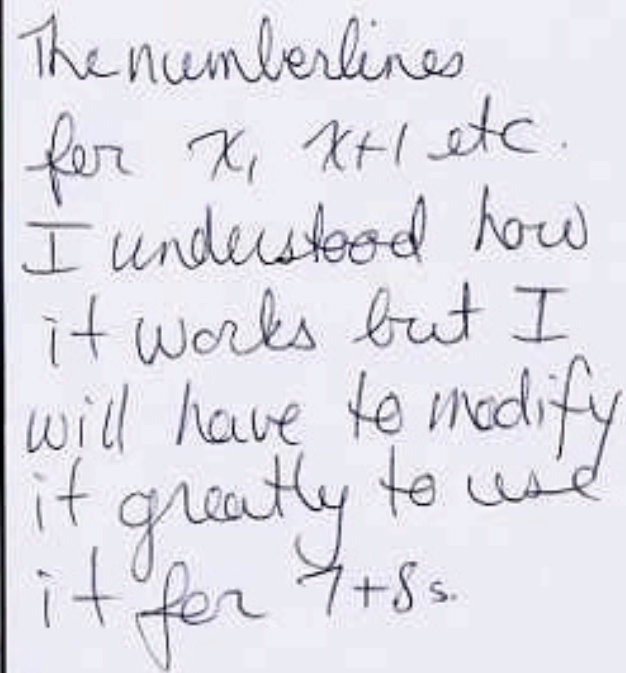 The numberlines
for x, x+1 etc.
I understood how
it works but I
will have to modify
it greatly to use
it for 7+8s.